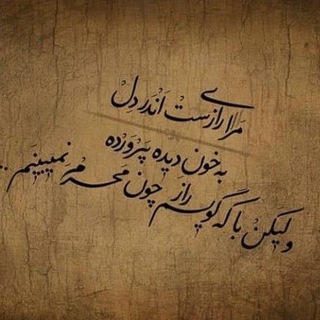 مرا رازیست اندر دل
به خون دیده پرورده
ولیکن با که گویم راز چون محرم نمیبینم ..